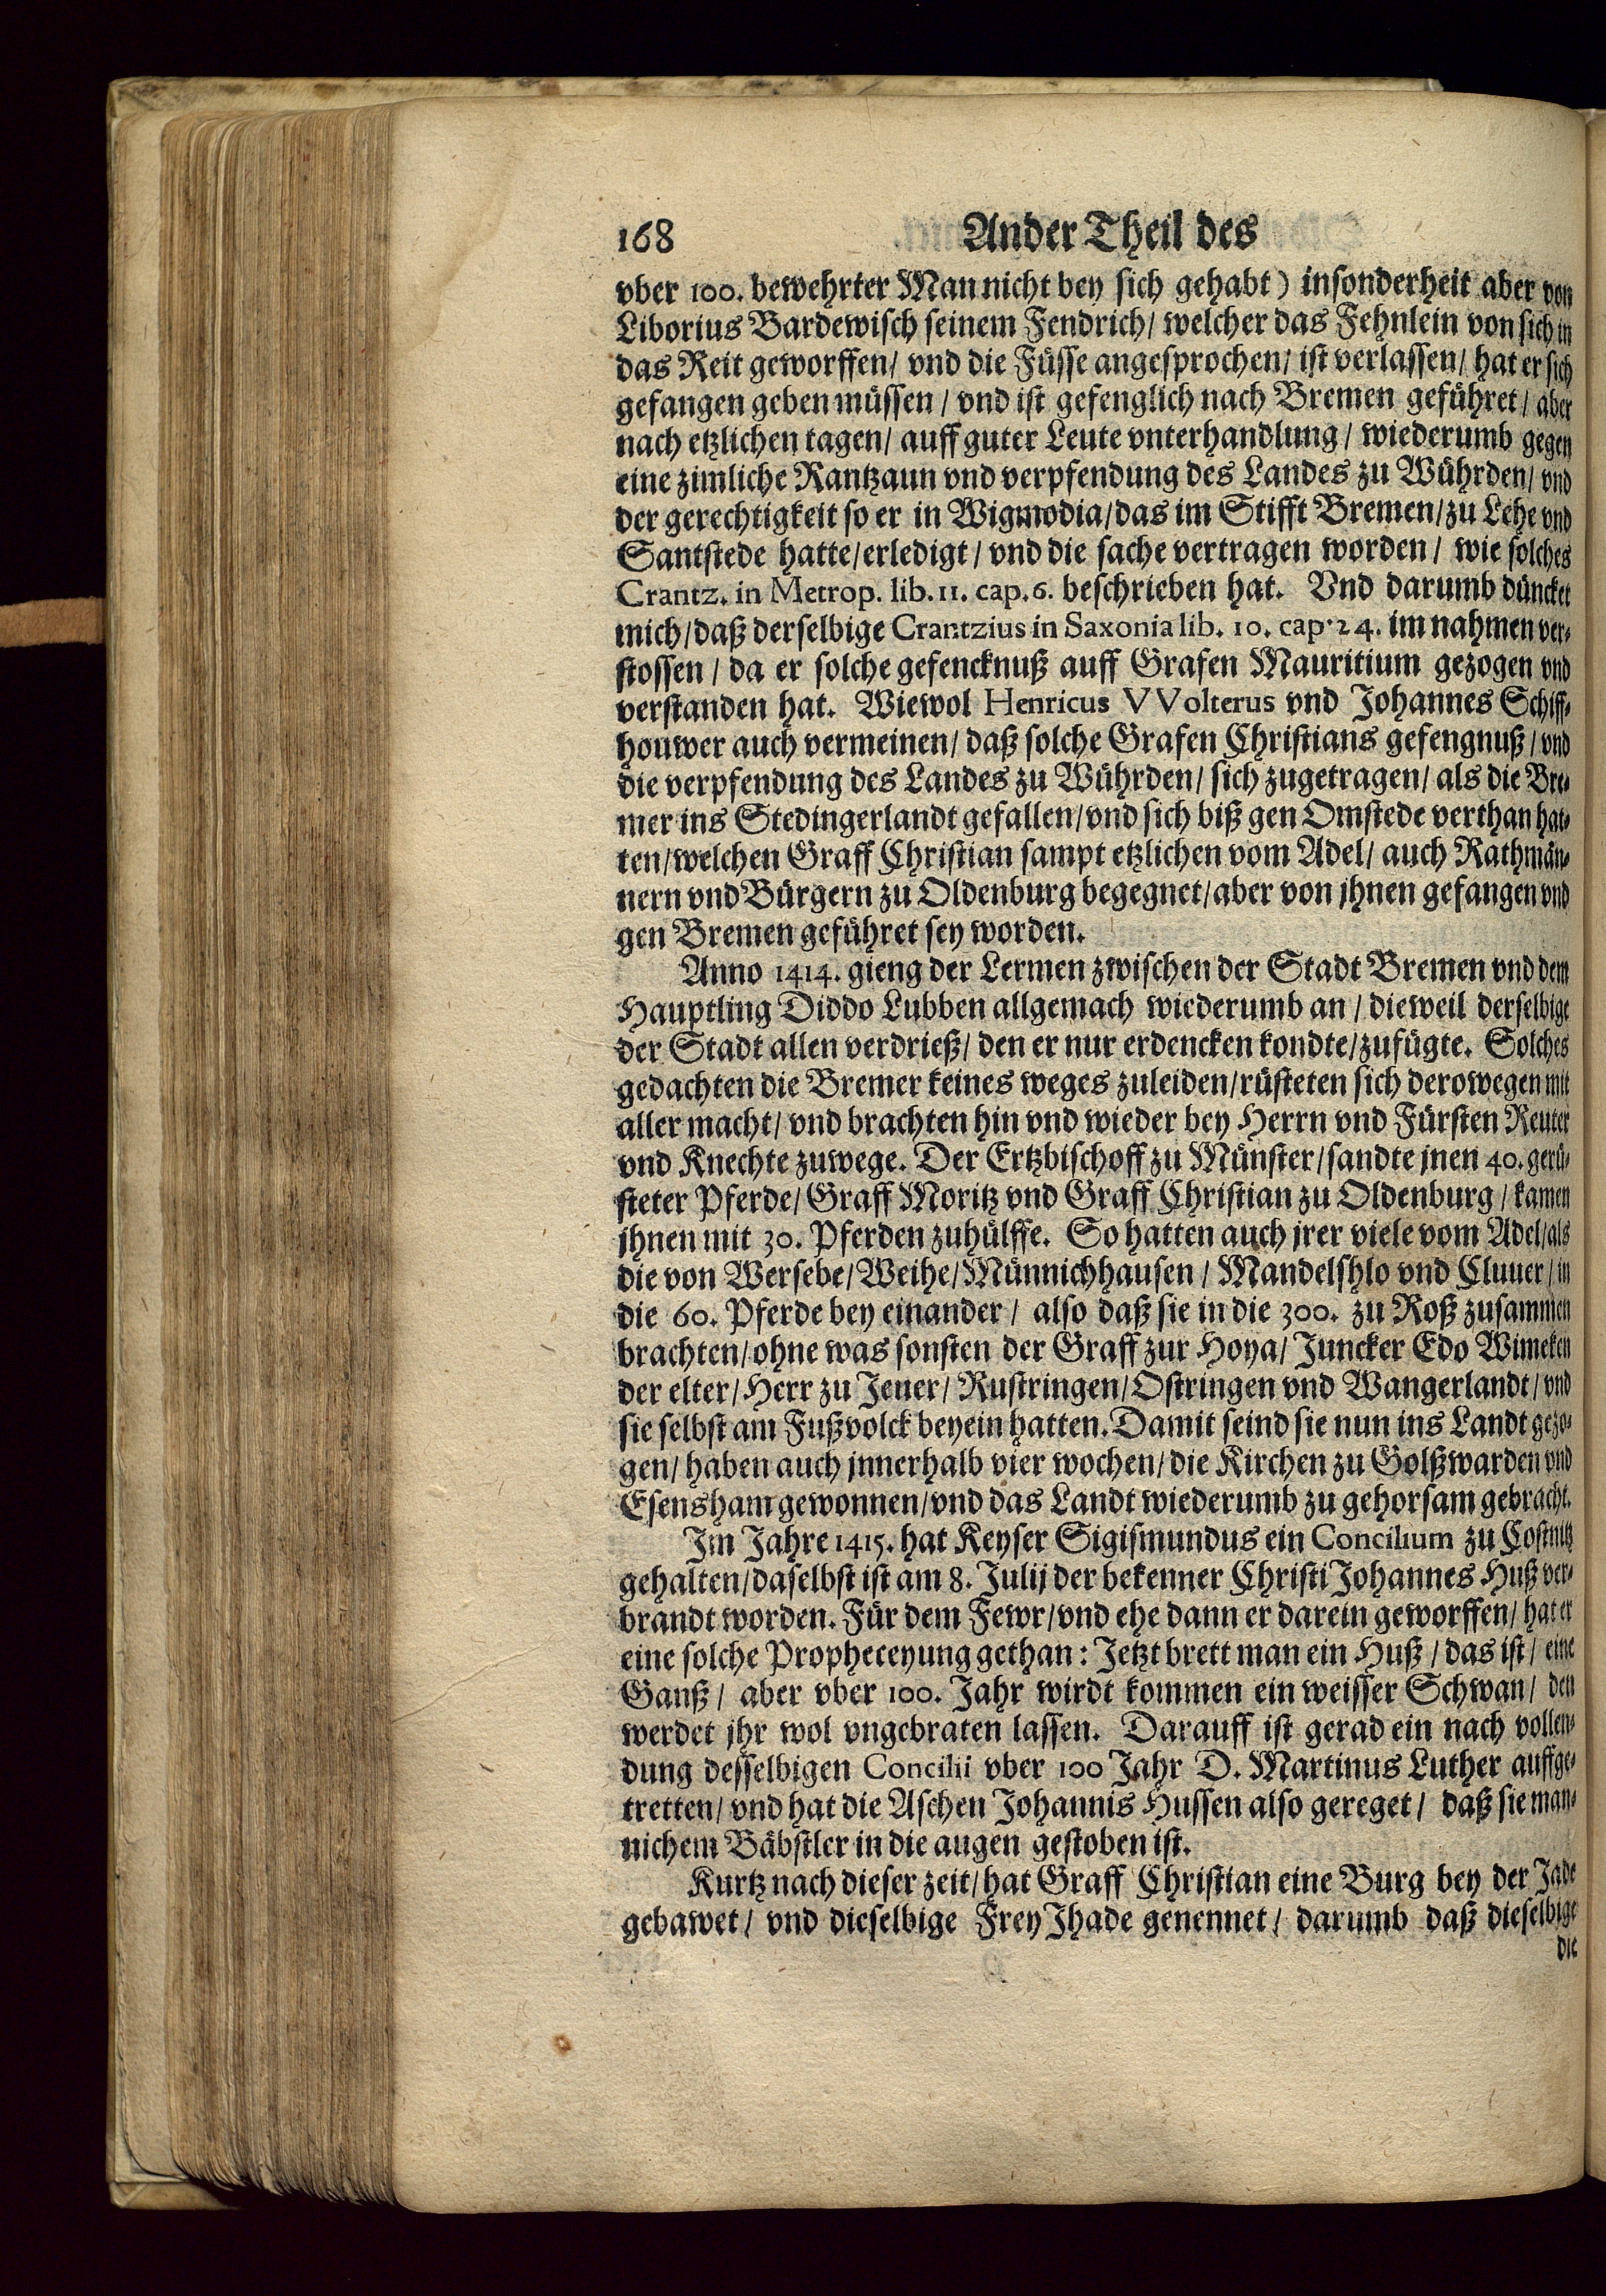 168 Ander Theil des
vber 100. bewehrter Man nicht bey sich gehabt) insonderheit aber von
Liborius Bardewisch seinem Fendrich/ welcher das Fehnlein von sich in
das Reit geworffen/ vnd die Füsse angesprochen/ ist verlassen/ hat er sich
gefangen geben müssen/ vnd ist gefenglich nach Bremen geführet/ aber
nach etzlichen tagen/ auff guter Leute vnterhandlung/ wiederumb gegen
eine zimliche Rantzaun vnd verpfendung des Landes zu Wührden/ vnd
der gerechtigkeit so er in Wigmodia/das im Stifft Bremen/zu Lehe vnd
Santstede hatte/erledigt/ vnd die sache vertragen worden/ wie solches
Crantz. in Metrop. lib. 11. cap. 6. beschrieben hat. Vnd darumb düncket
mich/daß derselbige Crantzius in Saxonia lib. 10. cap. 24. im nahmen ver-
stossen/ da er solche gefencknuß auff Grafen Mauritium gezogen vnd
verstanden hat. Wiewol Henricus VVolterus vnd Johannes Schiff-
houwer auch vermeinen/ daß solche Grafen Christians gefengnuß/ vnd
die verpfendung des Landes zu Wührden/ sich zugetragen/ als die Bre-
mer ins Stedingerlandt gefallen/vnd sich biß gen Omstede verthan hat-
ten/welchen Graff Christian sampt etzlichen vom Adel/ auch Rathmän-
nern vnd Bürgern zu Oldenburg begegnet/aber von jhnen gefangen vnd
gen Bremen geführet sey worden.
Anno 1414. gieng der Lermen zwischen der Stadt Bremen vnd dem
Hauptling Diddo Lubben allgemach wiederumb an/ dieweil derselbige
der Stadt allen verdrieß/ den er nur erdencken kondte/zufügte. Solches
gedachten die Bremer keines weges zuleiden/rüsteten sich derowegen mit
aller macht/ vnd brachten hin vnd wieder bey Herrn vnd Fürsten Reuter
vnd Knechte zuwege. Der Ertzbischoff zu Münster/sandte jnen 40. gerü-
steter Pferde/ Graff Moritz vnd Graff Christian zu Oldenburg/ kamen
jhnen mit 30. Pferden zuhülffe. So hatten auch jrer viele vom Adel/als
die von Wersebe/Weihe/Münnichhausen/ Mandelshlo vnd Cluuer/ in
die 60. Pferde bey einander/ also daß sie in die 300. zu Roß zusammen
brachten/ohne was sonsten der Graff zur Hoya/ Juncker Edo Wimeken
der elter/Herr zu Jeuer/ Rustringen/Ostringen vnd Wangerlandt/ vnd
sie selbst am Fußvolck beyein hatten. Damit seind sie nun ins Landt gezo-
gen/ haben auch jnnerhalb vier wochen/die Kirchen zu Golßwarden vnd
Esensham gewonnen/vnd das Landt wiederumb zu gehorsam gebracht.
Im Jahre 1415. hat Keyser Sigismundus ein Concilium zu Costnitz
gehalten/daselbst ist am 8. Julij der bekenner Christi Johannes Huß ver-
brandt worden. Für dem Fewr/vnd ehe dann er darein geworffen/ hat er
eine solche Propheceyung gethan: Jetzt brett man ein Huß/ das ist/ eine
Ganß/ aber vber 100. Jahr wirdt kommen ein weisser Schwan/ den
werdet jhr wol vngebraten lassen. Darauff ist gerad ein nach vollen-
dung desselbigen Concilii vber 100 Jahr D. Martinus Luther auffge-
tretten/ vnd hat die Aschen Johannis Hussen also gereget/ daß sie man-
nichem Bäbstler in die augen gestoben ist.
Kurtz nach dieser zeit/hat Graff Christian eine Burg bey der Jade
gebawet/ vnd dieselbige Frey Jhade genennet/ darumb daß dieselbige
die